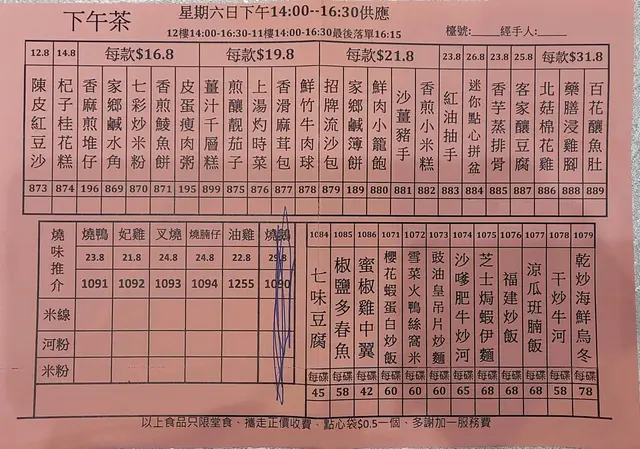 下午茶
星期六日下午14:00--16:30供應
12樓14:00-16:30-11樓14:00-16:30最後落單16:15
檯號:_____經手人:_____
12.8 14.8 每款$16.8 每款$19.8 每款$21.8 23.8 26.8 23.8 25.8 每款$31.8
陳皮紅豆沙
杞子桂花糕
香麻煎堆仔
家鄉鹹水角
七彩炒米粉
香煎鯪魚餅
皮蛋瘦肉粥
薑汁千層糕
煎釀靚茄子
上湯灼時菜
香滑麻茸包
鮮竹牛肉球
招牌流沙包
家鄉鹹薄餅
鮮肉小籠飽
沙薑豬手
香煎小米糕
紅油抽手
迷你點心拼盆
香芋蒸排骨
客家釀豆腐
北菇棉花雞
藥膳浸雞腳
百花釀魚肚
873 874 196 869 870 871 195 899 875 876 877 878 879 189 880 881 882 883 884 885 887 886 888 889
燒味推介
燒鴨 妃雞 叉燒 燒腩仔 油雞 燒鵝
23.8 21.8 24.8 24.8 22.8 29.8
1091 1092 1093 1094 1255 1090
米線
河粉
米粉
1084 1085 1086 1071 1072 1073 1074 1075 1076 1077 1078 1079
七味豆腐
椒鹽多春魚
蜜椒雞中翼
櫻花蝦蛋白炒飯
雪菜火鴨絲窩米
豉油皇吊片炒麵
沙嗲肥牛炒河
芝士焗蝦伊麵
福建炒飯
涼瓜班腩飯
干炒牛河
乾炒海鮮烏冬
每碟 每碟 每碟 每碟 每碟 每碟 每碟 每碟 每碟 每碟 每碟 每碟
45 58 42 60 60 60 65 68 68 68 58 78
以上食品只限堂食、攜走正價收費、點心袋$0.5一個、多謝加一服務費